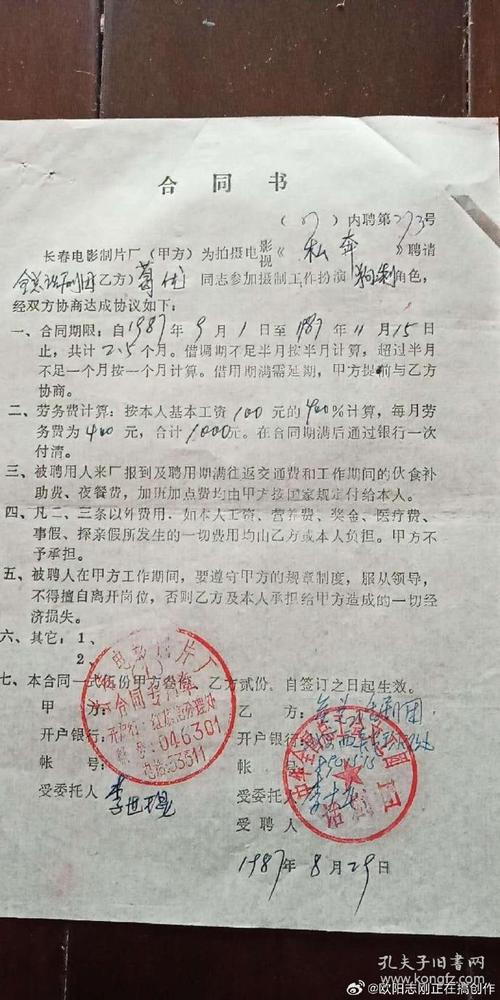 合同书
（87）内聘第273号
长春电影制片厂（甲方）为拍摄电影视《私奔》聘请
全总话剧团乙方）葛优同志参加摄制工作扮演 角色，
经双方协商达成协议如下：
一、合同期限：自1987年9月1日至1987年11月15日
止，共计2.5个月。借调期不足半月按半月计算，超过半月
不足一个月按一个月计算。借用期满需延期，甲方提前与乙方
协商。
二、劳务费计算：按本人基本工资100元的400%计算，每月劳
务费为400元，合计1000元。在合同期满后通过银行一次
付清。
三、被聘用人来厂报到及聘用期满往返交通费和工作期间的伙食补
助费、夜餐费，加班加点费均由甲方按国家规定付给本人。
四、凡二、三条以外费用．如本人工资、营养费、奖金、医疗费、
事假、探亲假所发生的一切费用均由乙方或本人负担。甲方不
予承担。
五、被聘人在甲方工作期间，要遵守甲方的规章制度，服从领导，
不得擅自离开岗位，否则乙方及本人承担给甲方造成的一切经
济损失。
六、其它：1、
2、
七、本合同一式伍份甲方叁份，乙方贰份。自签订之日起生效。
甲方：
开户银行：
帐号：
受委托人
电影制片厂
合同专用章
开户行：红旗街分理处
帐号：046301
电话：53511
乙方：全总话剧团
开户银行：
帐号：
受委托人
受聘人
中华全国总工会
话剧团
1987年8月29日
孔夫子旧书网
@欧阳志刚正在搞创作